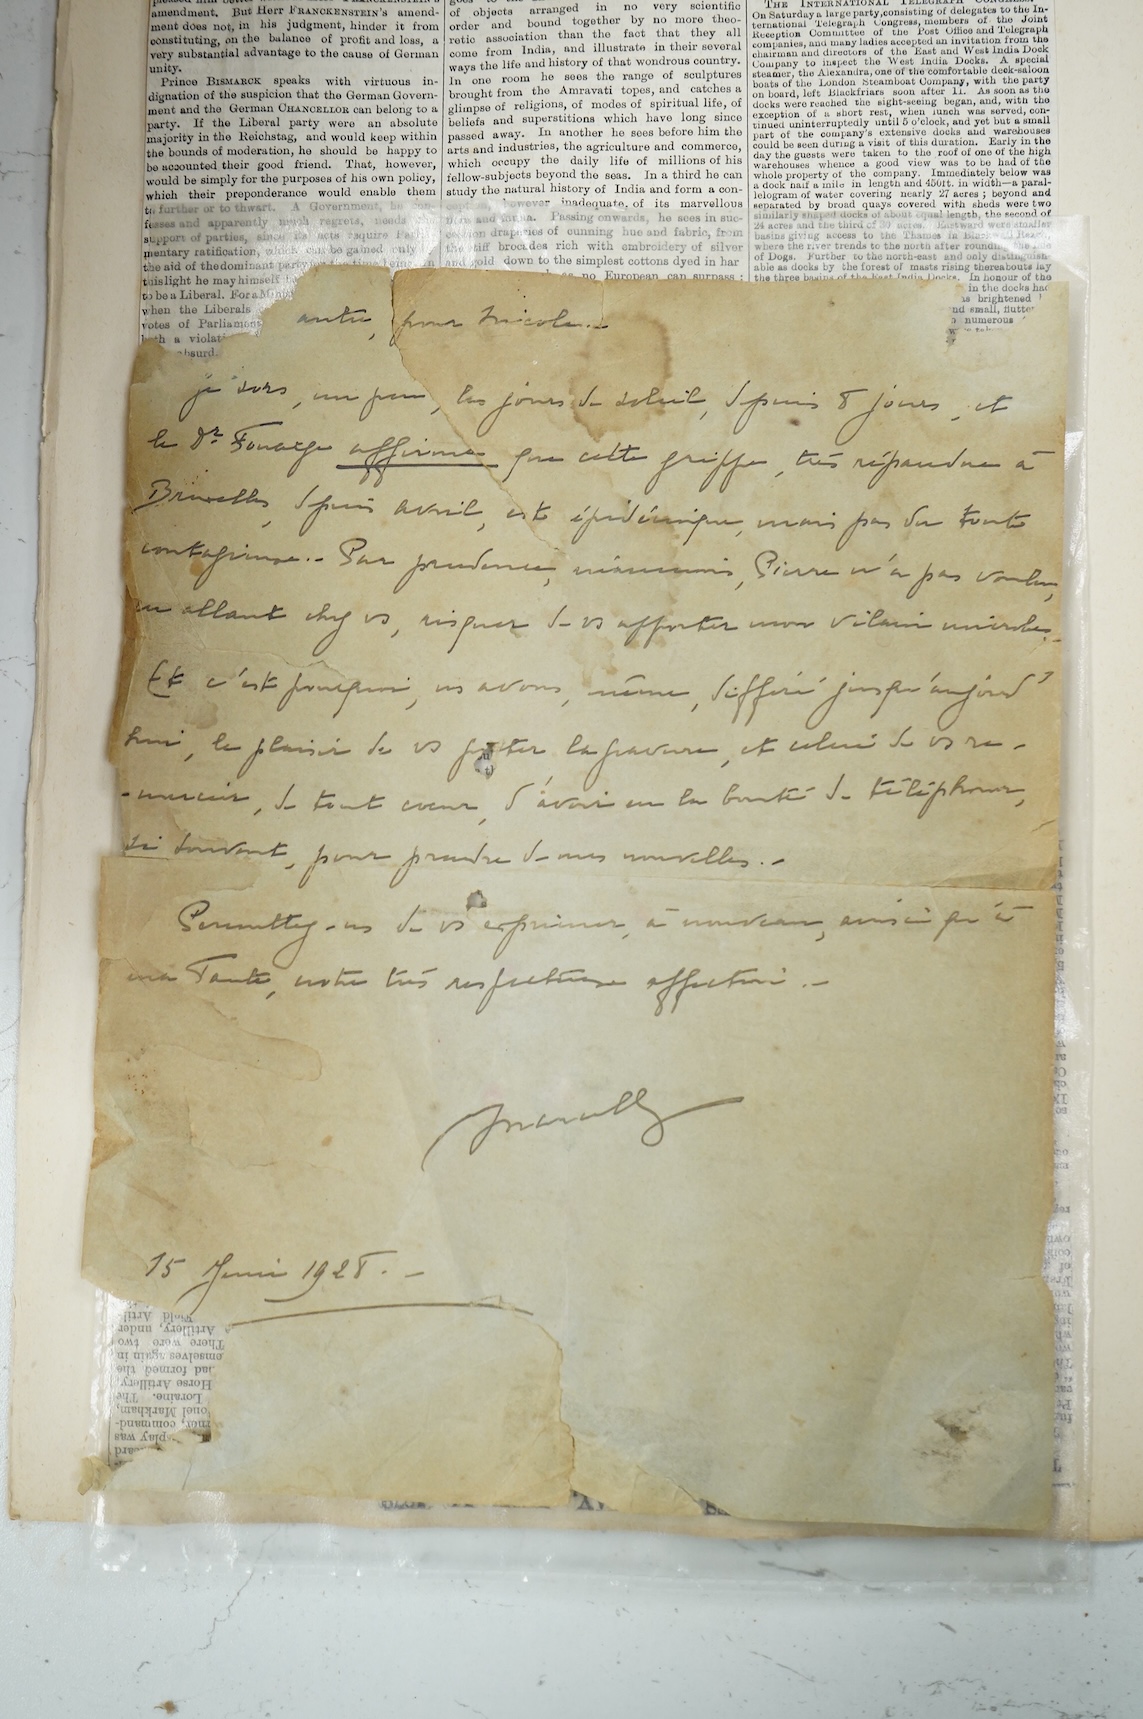 amendment. But Herr FRANCKENSTEIN's amend-
ment does not, in his judgment, hinder it from
constituting, on the balance of profit and loss, a
very substantial advantage to the cause of German
unity.
Prince BISMARCK speaks with virtuous in-
dignation of the suspicion that the German Govern-
ment and the German CHANCELLOR can belong to a
party. If the Liberal party were an absolute
majority in the Reichstag, and would keep within
the bounds of moderation, he should be happy to
be accounted their good friend. That, however,
would be simply for the purposes of his own policy,
which their preponderance would enable them
to further or to thwart. A Government, he con-
fesses and apparently much regrets, needs the
support of parties, since its acts require Parlia-
mentary ratification, which can be gained only by
the aid of the dominant party for the time being. In
this light he may himself
to be a Liberal. For a
when the Liberals
votes of Parliament
absurd.
of objects arranged in no very scientific
order and bound together by no more theo-
retic association than the fact that they all
come from India, and illustrate in their several
ways the life and history of that wondrous country.
In one room he sees the range of sculptures
brought from the Amravati topes, and catches a
glimpse of religions, of modes of spiritual life, of
beliefs and superstitions which have long since
passed away. In another he sees before him the
arts and industries, the agriculture and commerce,
which occupy the daily life of millions of his
fellow-subjects beyond the seas. In a third he can
study the natural history of India and form a con-
ception, however inadequate, of its marvellous
flora and fauna. Passing onwards, he sees in suc-
cession draperies of cunning hue and fabric, from
the stiff brocades rich with embroidery of silver
and gold down to the simplest cottons dyed in har
no European can surpass ;
THE INTERNATIONAL TELEGRAPH CONGRESS.
On Saturday a large party, consisting of delegates to the In-
ternational Telegraph Congress, members of the Joint
Reception Committee of the Post Office and Telegraph
companies, and many ladies accepted an invitation from the
chairman and directors of the East and West India Dock
Company to inspect the West India Docks. A special
steamer, the Alexandra, one of the comfortable deck-saloon
boats of the London Steamboat Company, with the party
on board, left Blackfriars soon after 11. As soon as the
docks were reached the sight-seeing began, and, with the
exception of a short rest, when lunch was served, con-
tinued uninterruptedly until 5 o'clock, and yet but a small
part of the company's extensive docks and warehouses
could be seen during a visit of this duration. Early in the
day the guests were taken to the roof of one of the high
warehouses whence a good view was to be had of the
whole property of the company. Immediately below was
a dock half a mile in length and 450ft. in width—a paral-
lelogram of water covering nearly 27 acres ; beyond and
separated by broad quays covered with sheds were two
similarly shaped docks of about equal length, the second of
24 acres and the third of 30 acres. Eastward were smaller
basins giving access to the Thames in Blackwall Reach,
where the river trends to the north after rounding the Isle
of Dogs. Further to the north-east and only distinguish-
able as docks by the forest of masts rising thereabouts lay
the three basins of the East India Docks. In honour of the
in the docks had
brightened
and small, flutter
numerous
autre, pour Nicole..
je sors, un peu, les jours de soleil, depuis 8 jours, et
le Dr Fouarge affirme que cette grippe, très répandue à
Bruxelles, depuis avril, est épidémique, mais pas du tout
contagieuse.- Par prudence, néanmoins, Pierre n'a pas voulu,
en allant chez vs, risquer de vs apporter mon vilain microbe.
Et c'est pourquoi, ns avons, même, différé jusqu'aujourd'
hui, le plaisir de vs porter la gravure, et celui de vs re-
-mercier, de tout coeur, d'avoir eu la bonté de téléphoner,
si souvent, pour prendre de mes nouvelles.-
Permettez-ns de vs exprimer, à nouveau, ainsi qu'à
ma Tante, notre très respectueuse affection.-
15 Juin 1928.-
Field Artil-
Artillery, under
There were two
emselves again in
and formed the
Horse Artillery,
Loraine. The
onel Markham,
command-
play was